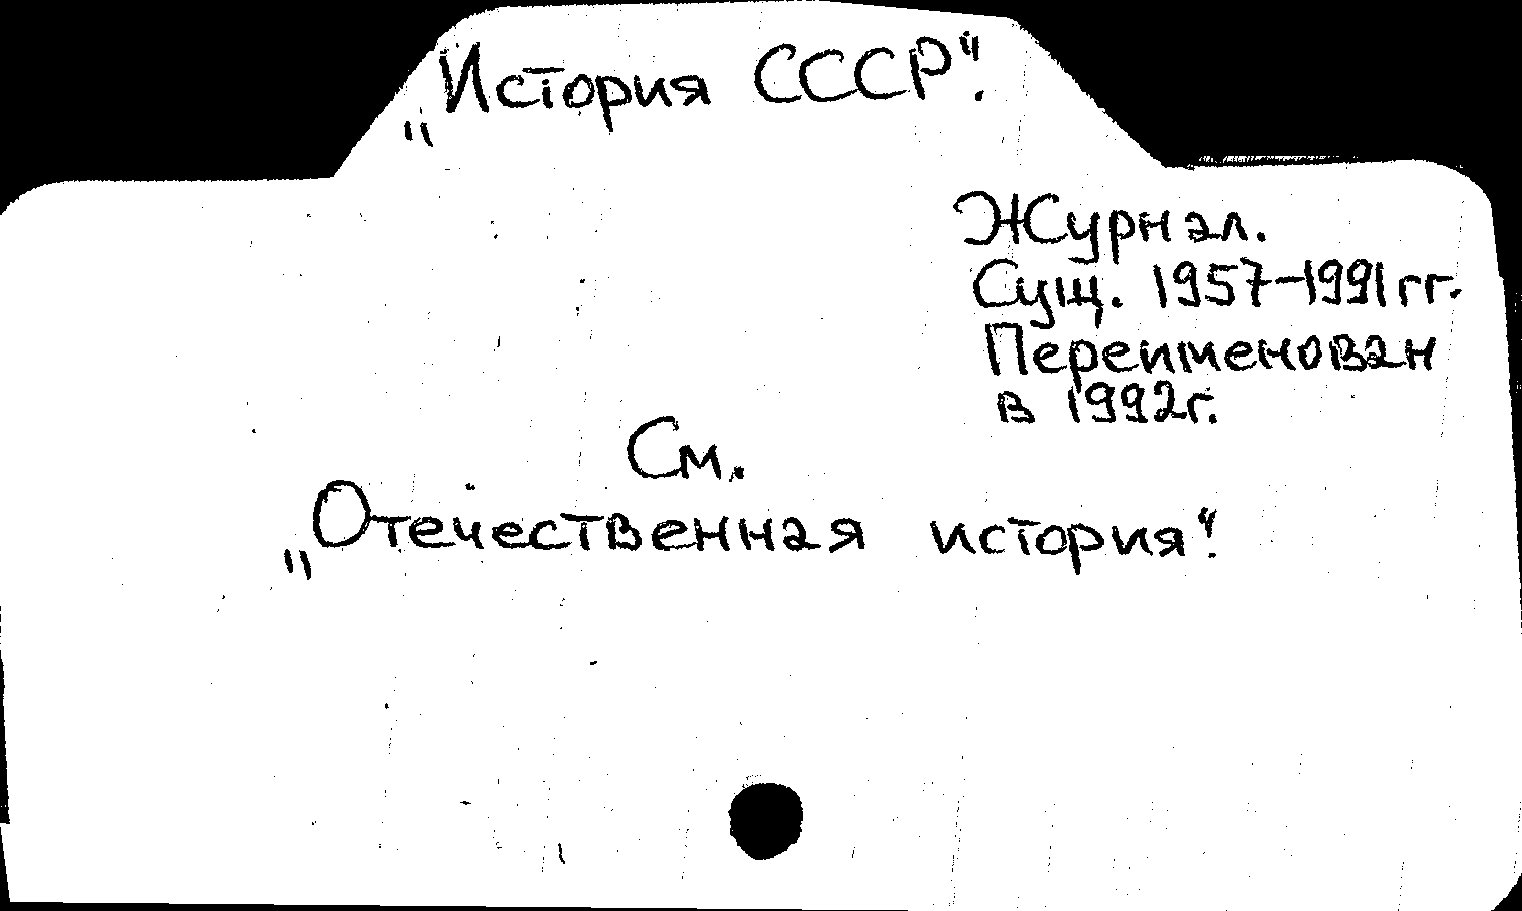 „История СССР“.
Журнал.
Сущ. 1957-1991 гг.
Переименован
в 1992г.
См.
„Отечественная история“.